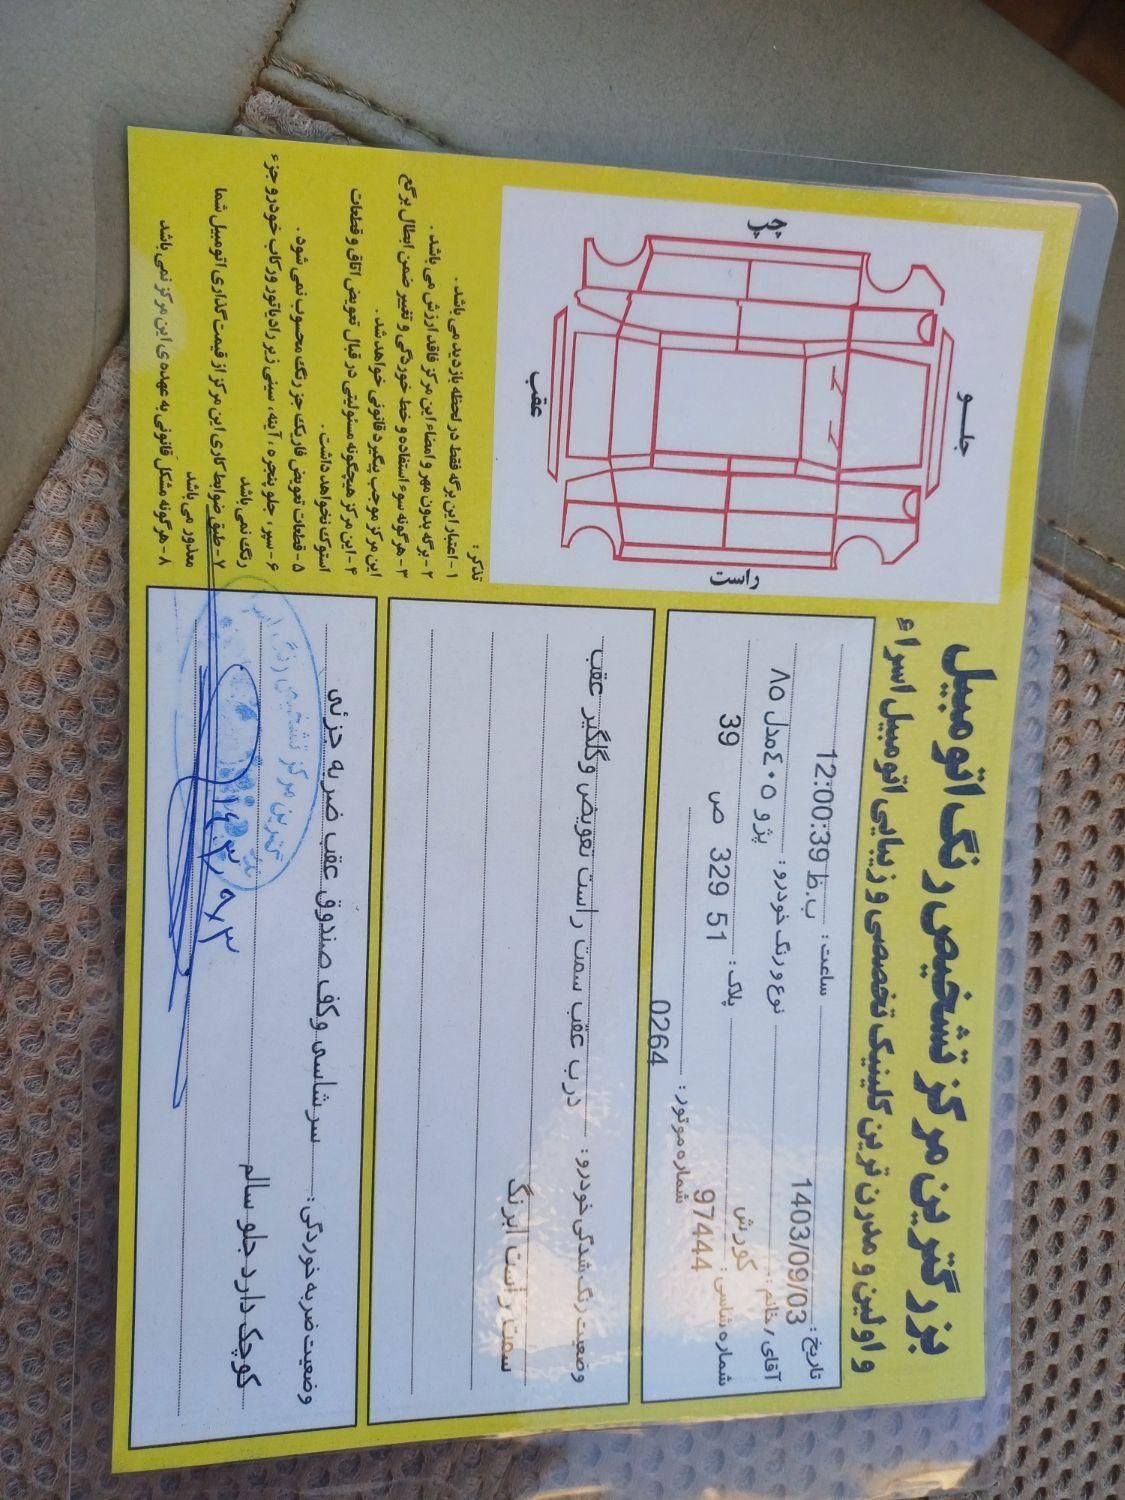 بزرگترین مرکز تشخیص رنگ اتومبیل
و اولین و مدرن ترین کلینیک تخصصی و زیبایی اتومبیل اسراء
تاریخ : 1403/09/03 ساعت : 12:00:39 ب.ظ
آقای / خانم : کورش نوع و رنگ خودرو : پژو ۴۰۵ مدل ۸۵
شماره شاسی : 97444 پلاک : 51 329 ص 39
شماره موتور : 0264
وضعیت رنگ شدگی خودرو : درب عقب سمت راست تعویض و گلگیر عقب
سمت راست ابرنگ
وضعیت ضربه خوردگی : سرشاسی و کف صندوق عقب ضربه جزئی
کوچک دارد جلو سالم
۱۴۰۳٫۹٫۳
چپ
جلو
عقب
راست
تذکر :
۱ - اعتبار این برگه فقط در لحظه بازدید می باشد .
۲ - برگه بدون مهر و امضاء این مرکز فاقد ارزش می باشد .
۳ - هرگونه سوء استفاده و خط خوردگی و تغییر ضمن ابطال برگع
این مرکز موجب پیگیرد قانونی خواهد شد .
۴ - این مرکز هیچگونه مسئولیتی در قبال تعویض اتاق و قطعات
استوک نخواهد داشت .
۵ - قطعات تعویض فابریک جز رنگ محسوب نمی شود .
۶ - سپر ، جلو پنجره ، آینه ، سینی زیر رادیاتور و رکاب خودرو جزء
رنگ نمی باشد
۷ - طبق ضوابط کاری این مرکز از قیمت گذاری اتومبیل شما
معذور می باشد
۸ - هرگونه مشکل قانونی به عهده ی این مرکز نمی باشد